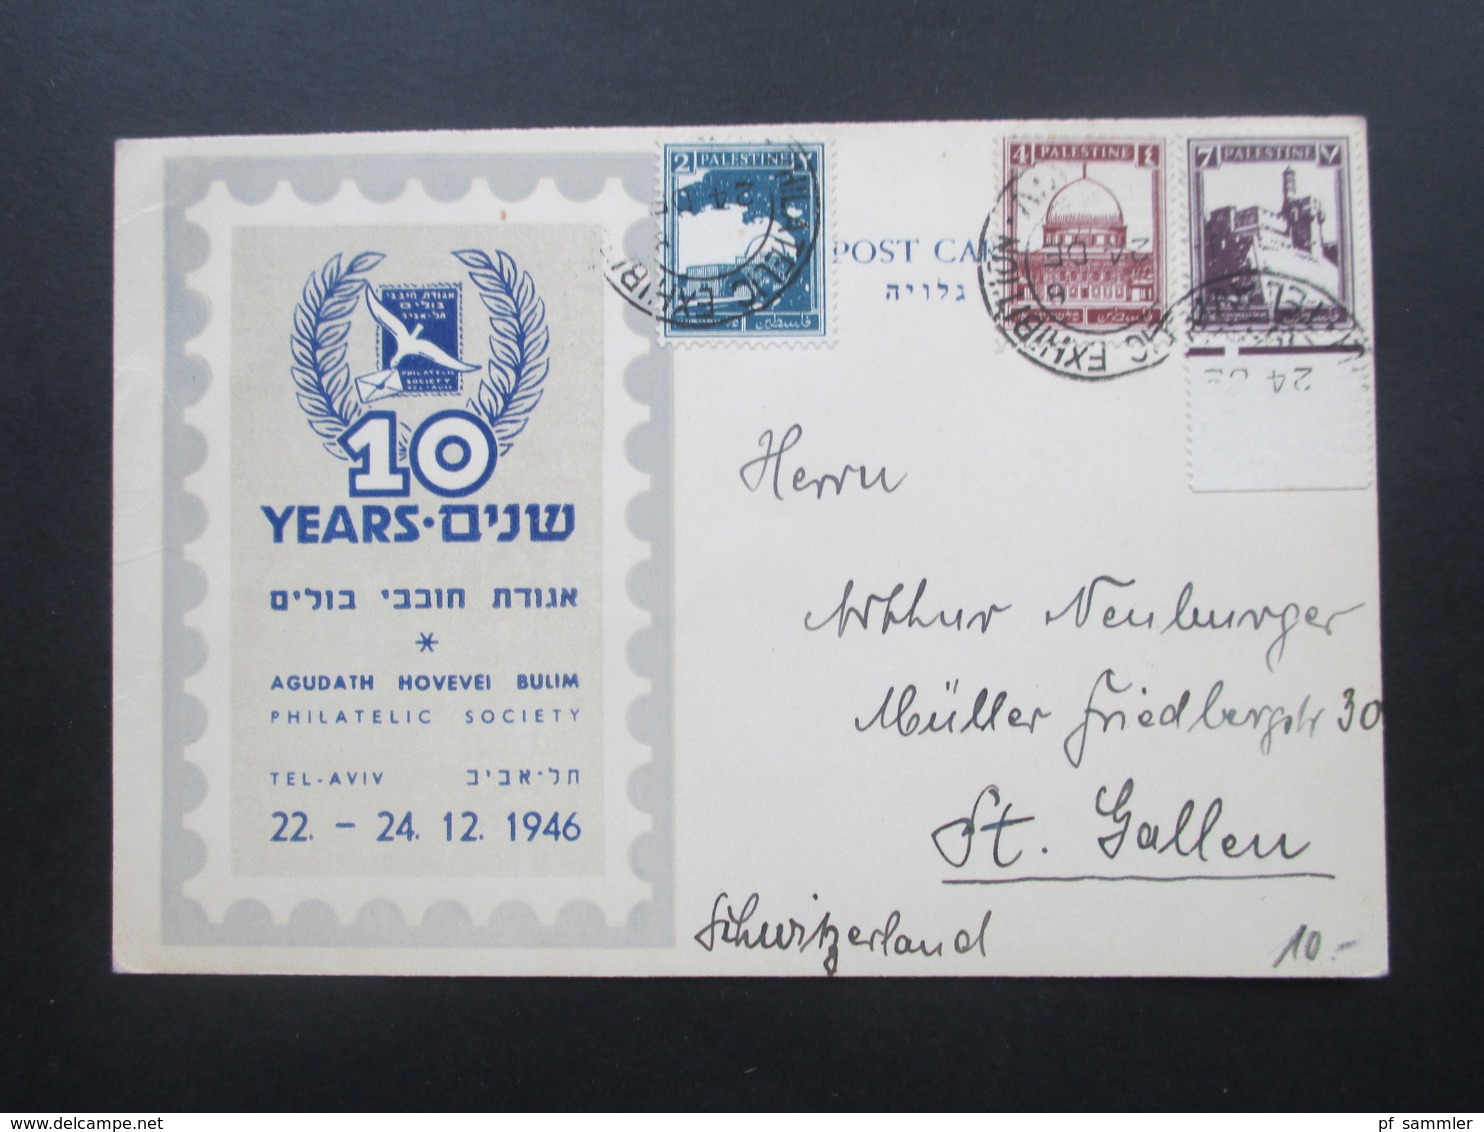 אגודת חובבי
בולים
תל-אביב
PHILATELIC
SOCIETY
TEL-AVIV
10
YEARS · שנים
אגודת חובבי בולים
*
AGUDATH HOVEVEI BULIM
PHILATELIC SOCIETY
TEL-AVIV תל-אביב
22. - 24. 12. 1946
2 PALESTINE ٢
فلسطين
4 PALESTINE ٤
فلسطين
7 PALESTINE ٧
POST CAR
גלויה
EXHIBITION
24 DE
24 DE
Herrn
Arthur Neuburger
Müller Friedbergstr 30
St. Gallen
Schwitzerland
10.-
pf sammler